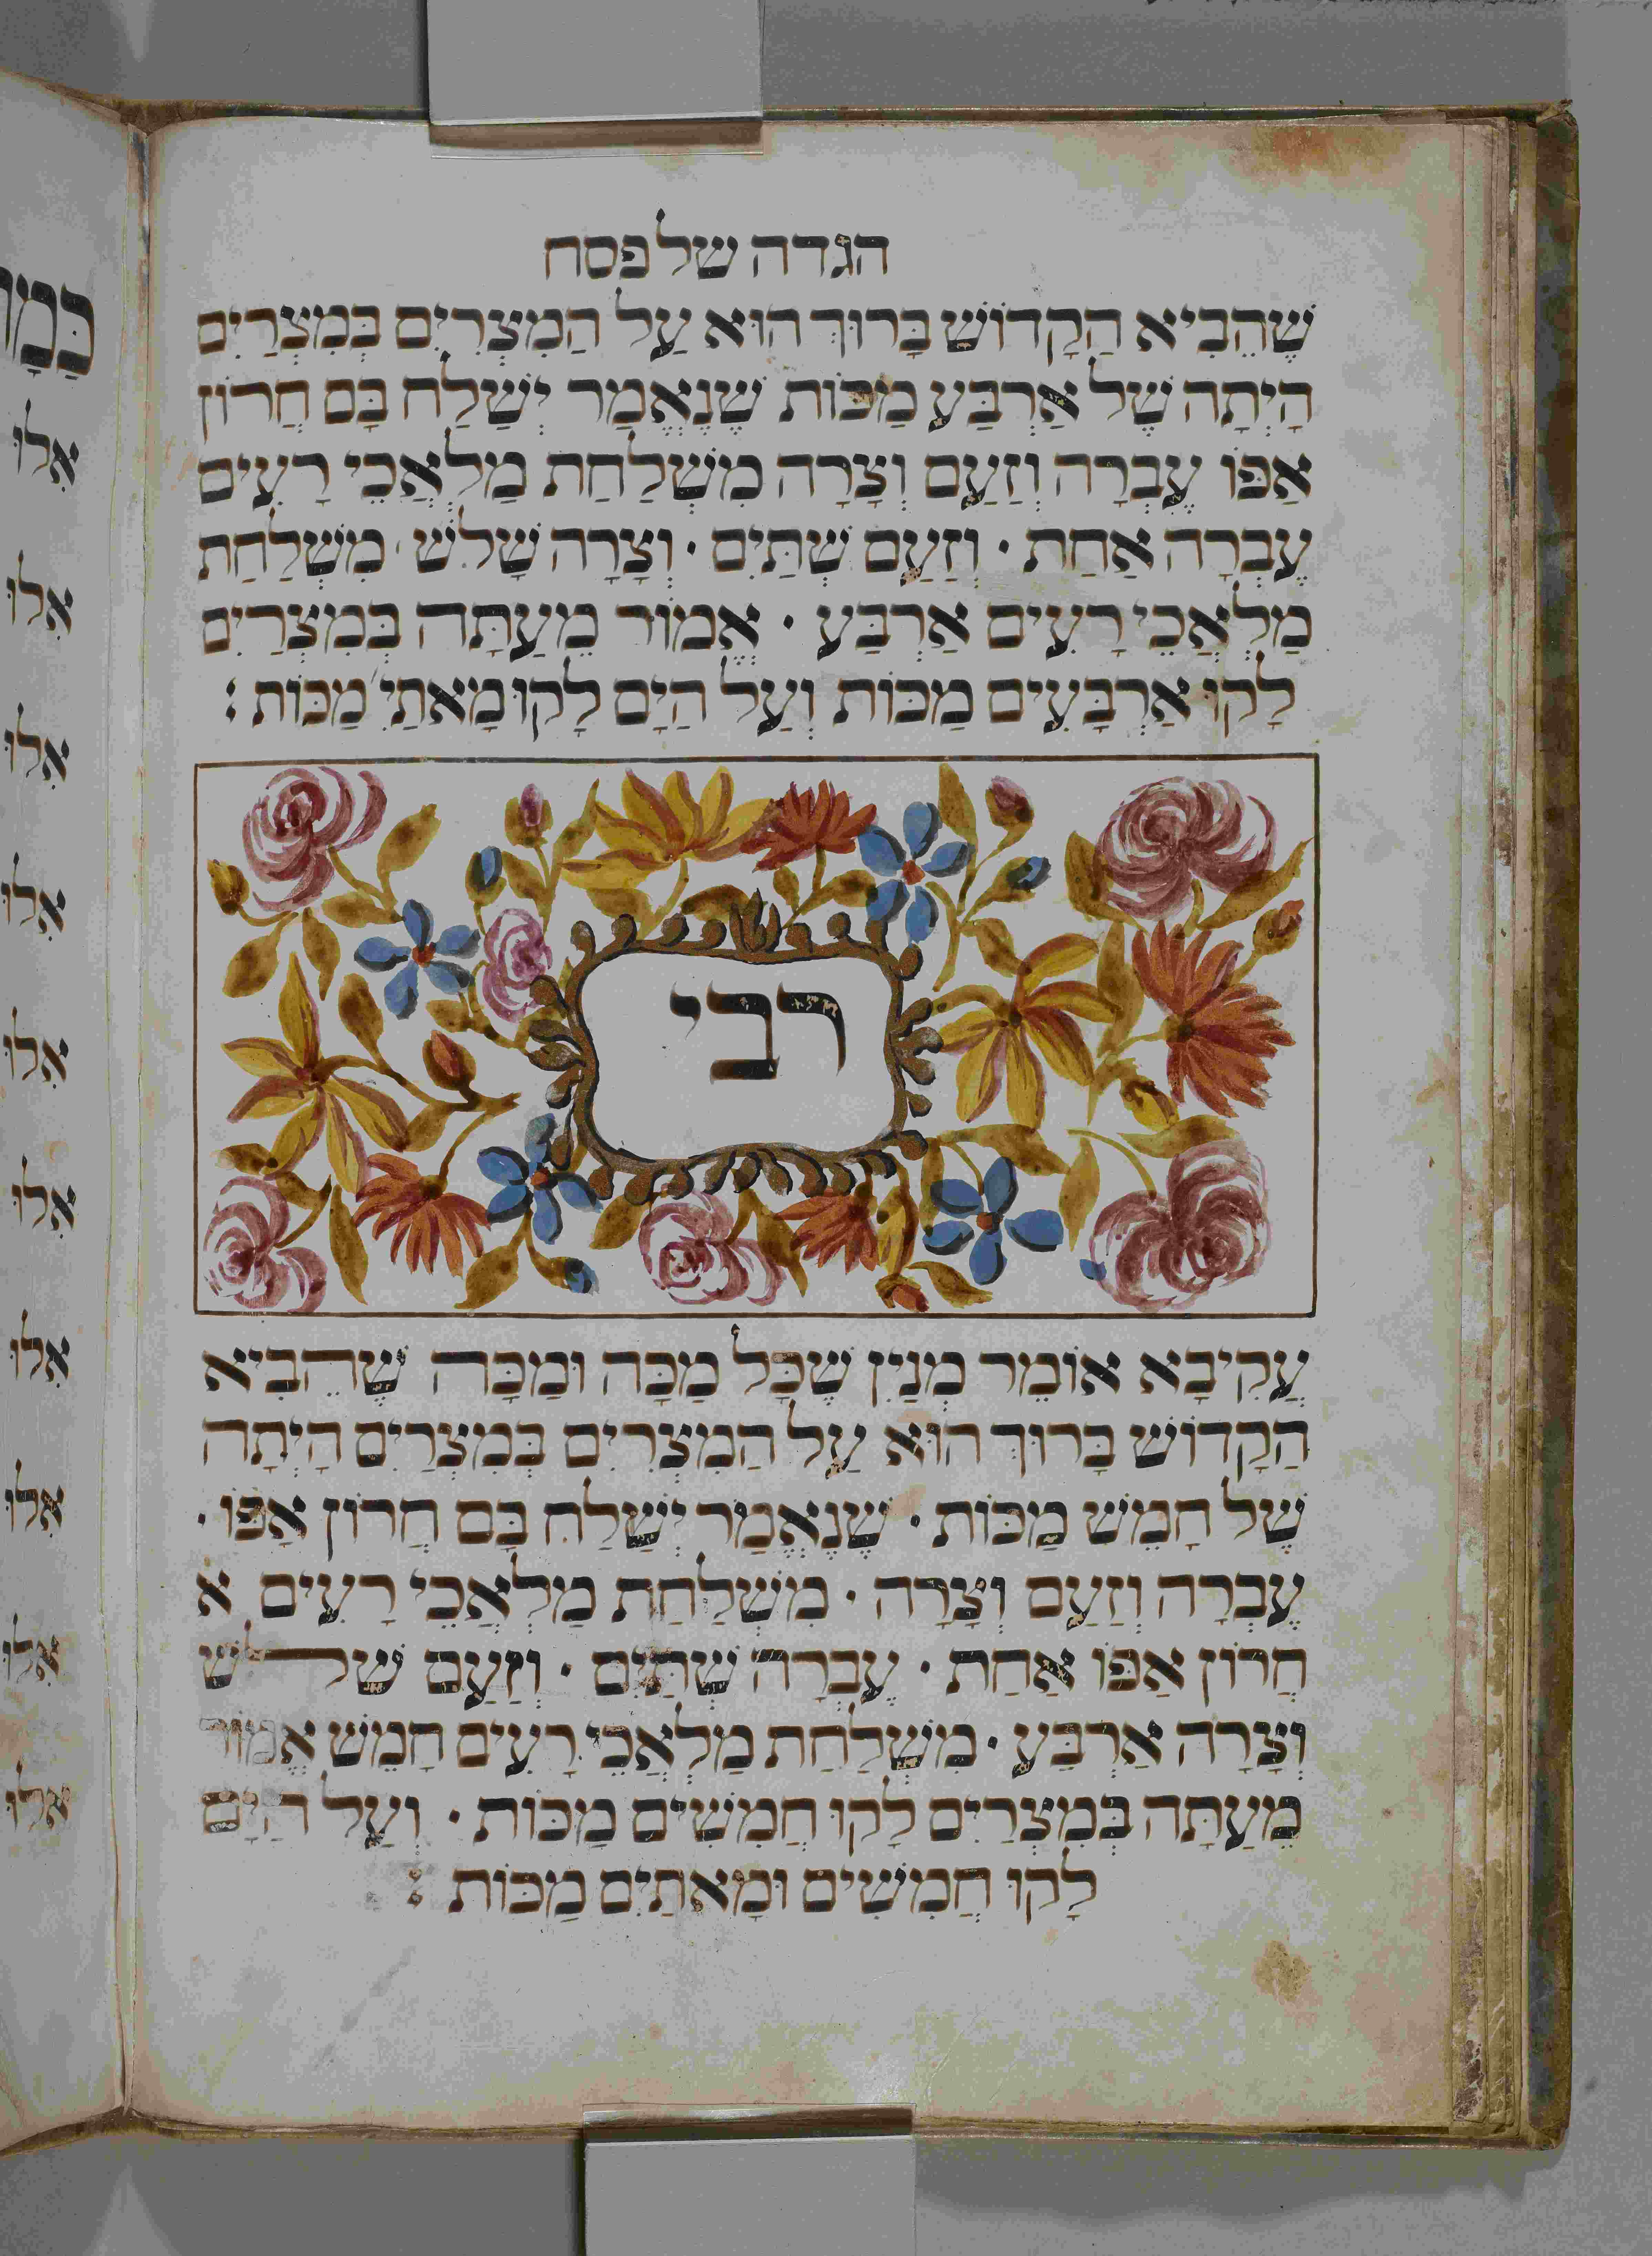 הגדה של פסח
שֶׁהֵבִיא הַקָדוֹשׁ בָּרוּךְ הוּא עַל הַמִצְרִיִם בְּמִצְרַיִם
הָיְתָה שֶׁל אַרְבַּע מַכּוֹת שֶׁנֶאֱמַר יְשַׁלַח בָּם חֲרוֹן
אַפּוֹ עֶבְרָה וְזַעַם וְצָרָה מִשְׁלַחַת מַלְאֲכֵי רָעִים
עֶבְרָה אַחַת · וְזַעַם שְׁתַּיִם · וְצָרָה שָׁלֹשׁ · מִשְׁלַחַת
מַלְאֲכֵי רָעִים אַרְבַּע · אֱמוֹר מֵעַתָּה בְּמִצְרַיִם
לָקוּ אַרְבָּעִים מַכּוֹת וְעַל הַיָם לָקוּ מָאתַיִ׳ מַכּוֹת :
רבי
עֲקִיבָא אוֹמֵר מְנַיִן שֶׁכָּל מַכָּה וּמַכָּה שֶׁהֵבִיא
הַקָדוֹשׁ בָּרוּךְ הוּא עַל הַמִצְרִים בְּמִצְרַיִם הָיְתָה
שֶׁל חָמֵשׁ מַכּוֹת · שֶׁנֶאֱמַר יְשַׁלַח בָּם חֲרוֹן אַפּוֹ ·
עֶבְרָה וְזַעַם וְצָרָה · מִשְׁלַחַת מַלְאֲכֵי רָעִים א
חֲרוֹן אַפּוֹ אַחַת · עֶבְרָה שְׁתַּיִם · וְזַעַם שלשׁ
וְצָרָה אַרְבַּע · מִשְׁלַחַת מַלְאֲכֵי רָעִים חָמֵשׁ אֱמוֹר
מֵעַתָּה בְּמִצְרַיִם לָקוּ חֲמִשִׁים מַכּוֹת · וְעַל הַיָם
לָקוּ חֲמִשִׁים וּמָאתַיִם מַכּוֹת :
אִלוּ
אִלוּ
אִלוּ
אִלוּ
אִלוּ
אִלוּ
אִלוּ
אִלוּ
אִלוּ
אִלוּ